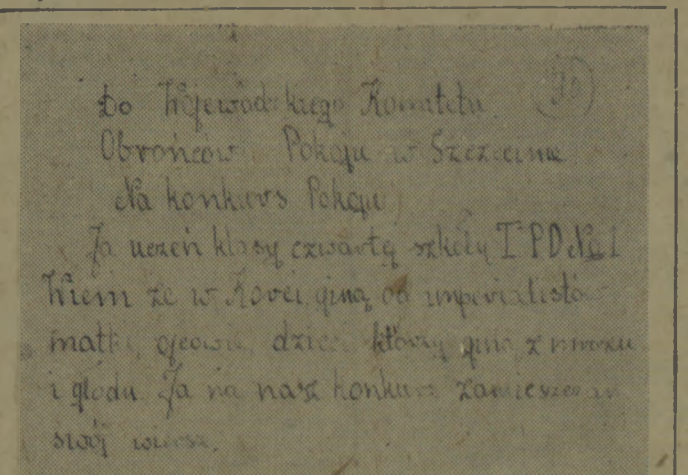 Do Wojewódzkiego Komitetu
Obrońców Pokoju w Szczecinie
Na konkurs Pokoju
Ja uczeń klasy czwartej szkoły TPD No 1
Wiem że w Korei giną od imperialistó
matki, ojcowie, dzieci którzy giną z mrozu
i głodu. Ja na nasz konkurs zamieszczam
swój wiersz.